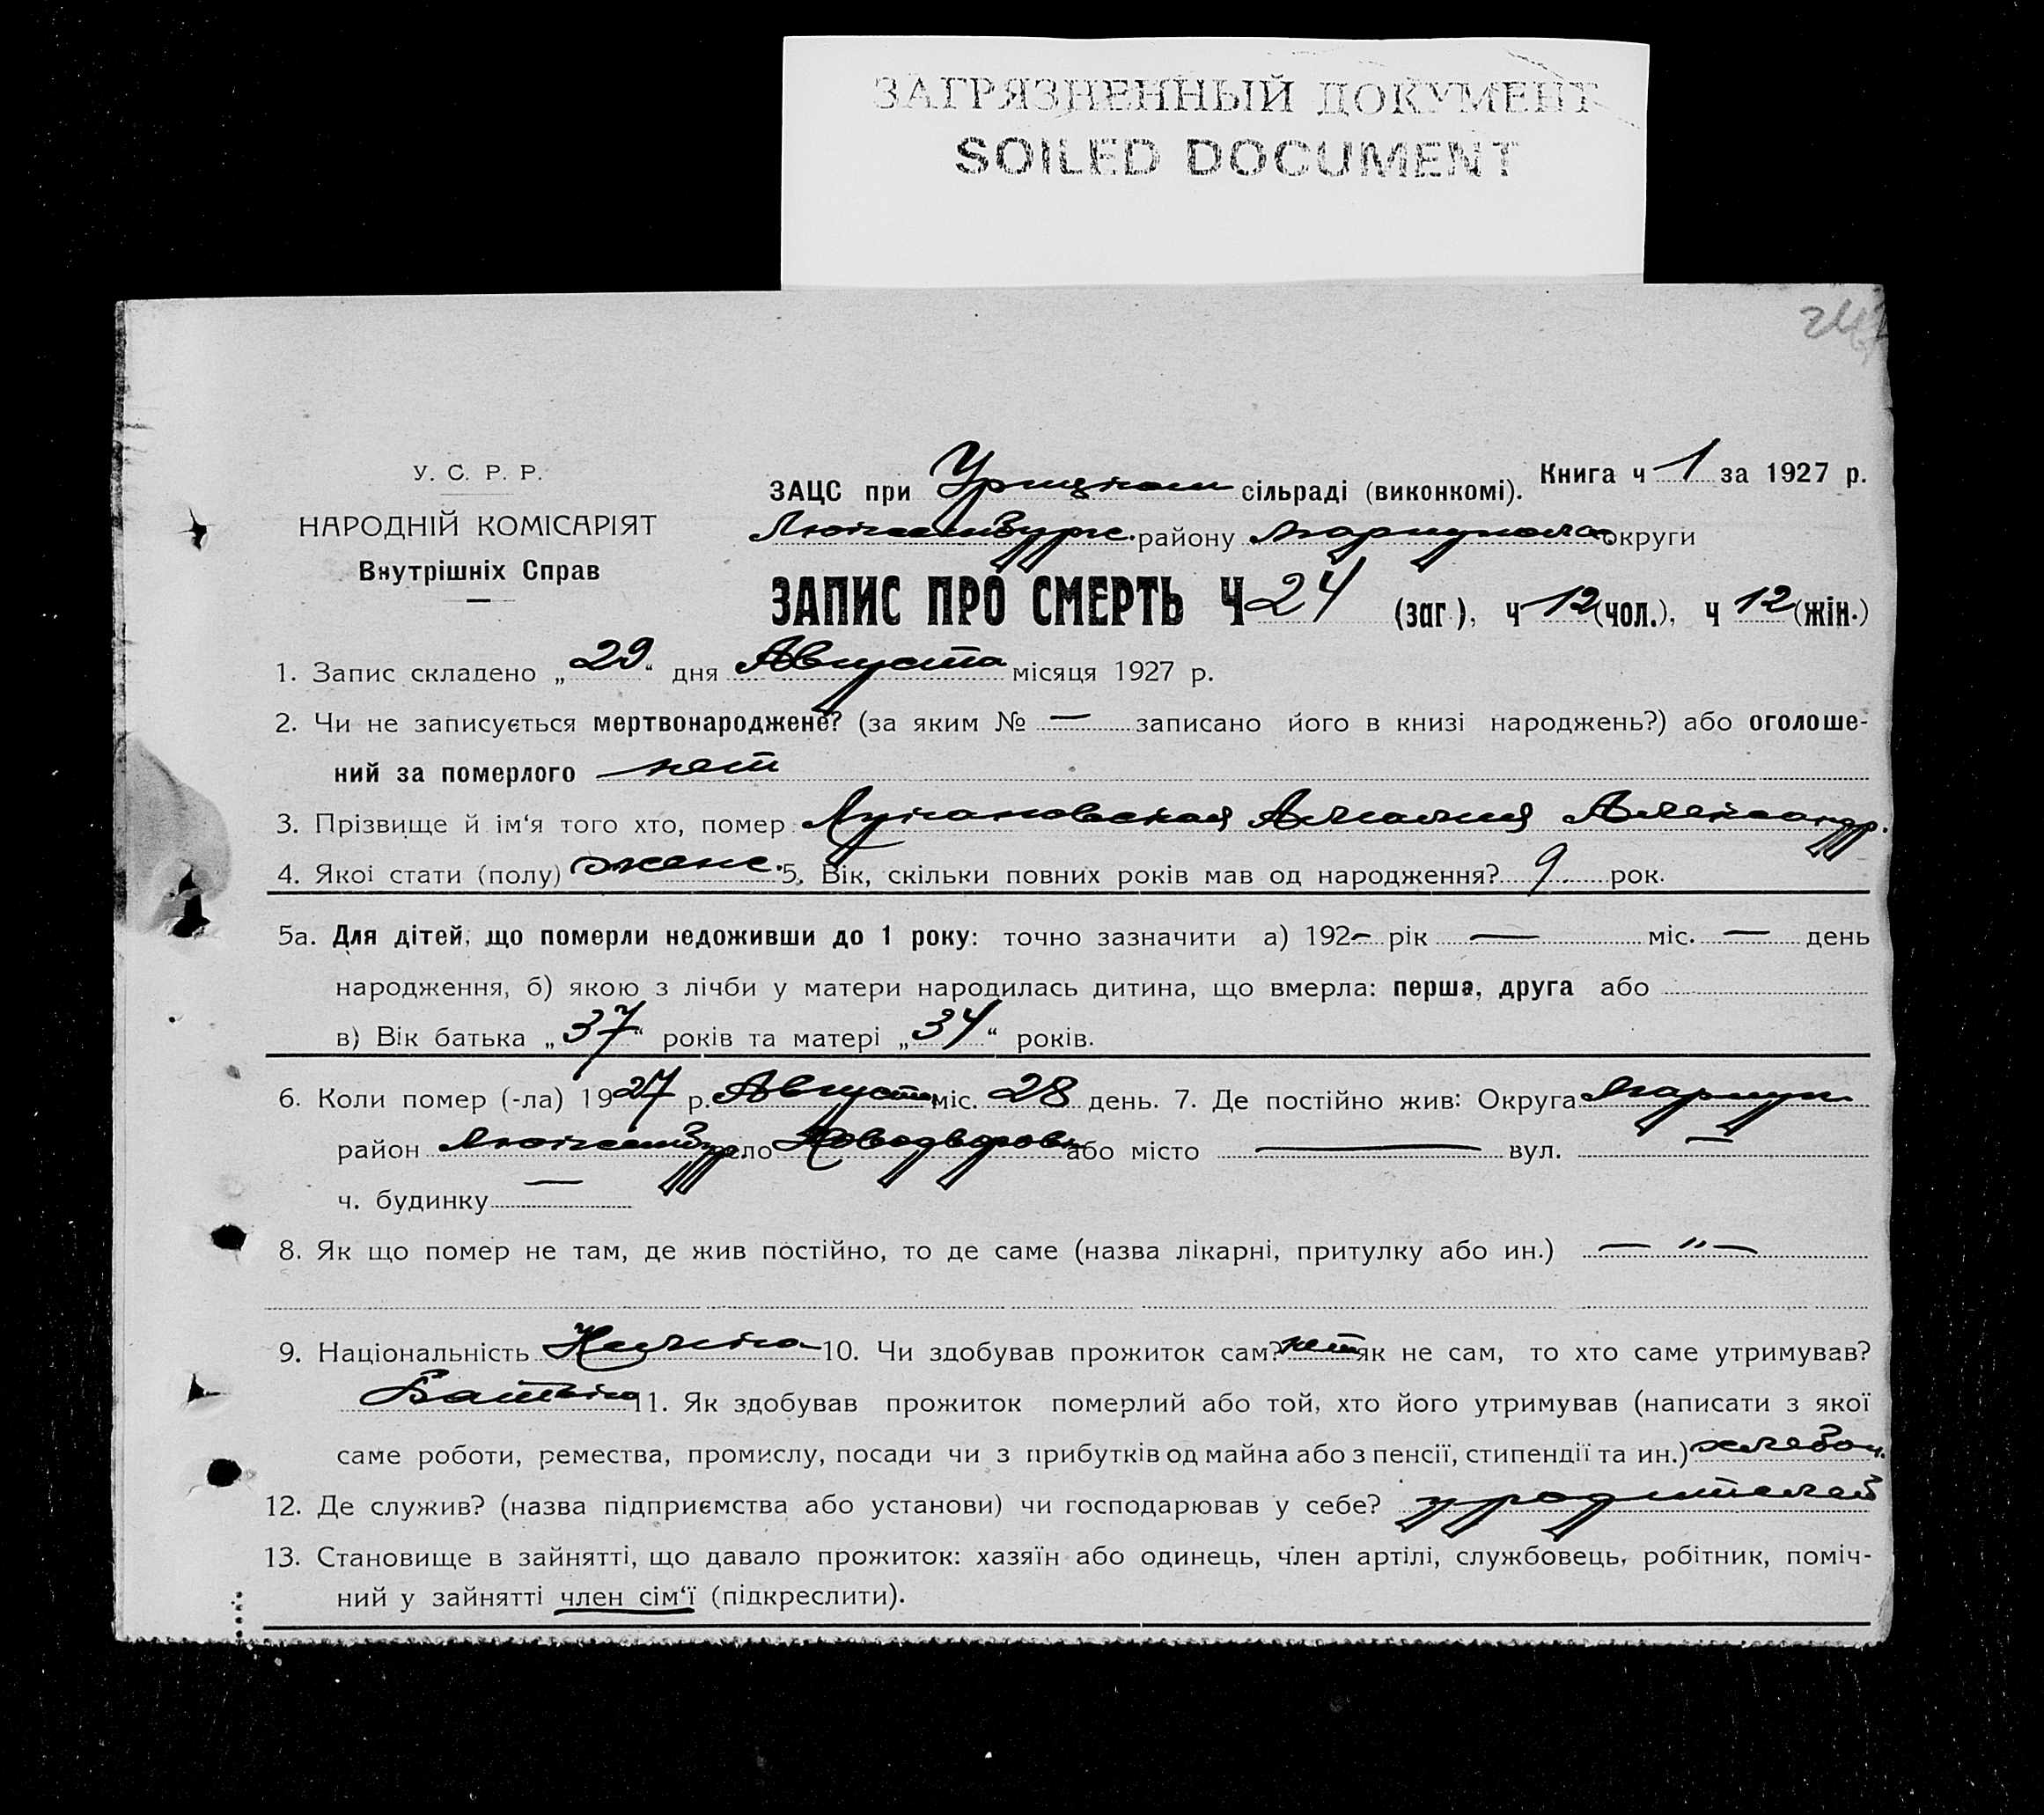 ЗАГРЯЗНЕННЫЙ ДОКУМЕНТ
SOILED DOCUMENT
У. С. Р. Р.
НАРОДНІЙ КОМІСАРІЯТ
Внутрішніх Справ
Книга ч 1 за 1927 р.
ЗАЦС при Урицком сільраді (виконкомі).
Люксембургс. району Мариупольс округи
ЗАПИС ПРО СМЕРТЬ Ч 24 (заг.), ч 12 (чол.), ч 12 (жін.)
1. Запис складено „29“ дня Августа місяця 1927 р.
2. Чи не записується мертвонароджене? (за яким № — записано його в книзі народжень?) або оголоше-
ний за померлого нет
3. Прізвище й ім‘я того хто, помер Амалия Александр.
4. Якої стати (полу) женс. 5. Вік, скільки повних років мав од народження? 9 рок.
5а. Для дітей, що померли недоживши до 1 року: точно зазначити а) 192— рік — міс. — день
народження, б) якою з лічби у матери народилась дитина, що вмерла: перша, друга або
в) Вік батька „37“ років та матері „34“ років.
6. Коли помер (-ла) 1927 р. Августа міс. 28 день. 7. Де постійно жив: Округа Мариуп.
район Люксембур. село Новодворовк або місто — вул. —
ч. будинку —
8. Як що помер не там, де жив постійно, то де саме (назва лікарні, притулку або ин.) — „ —
9. Національність Немка 10. Чи здобував прожиток сам? нет як не сам, то хто саме утримував?
Батько 11. Як здобував прожиток померлий або той, хто його утримував (написати з якої
саме роботи, ремества, промислу, посади чи з прибутків од майна або з пенсії, стипендії та ин.) хлебоп.
12. Де служив? (назва підприємства або установи) чи господарював у себе? у родителей
13. Становище в зайнятті, що давало прожиток: хазяїн або одинець, член артілі, службовець, робітник, поміч-
ний у зайнятті член сім‘ї (підкреслити).